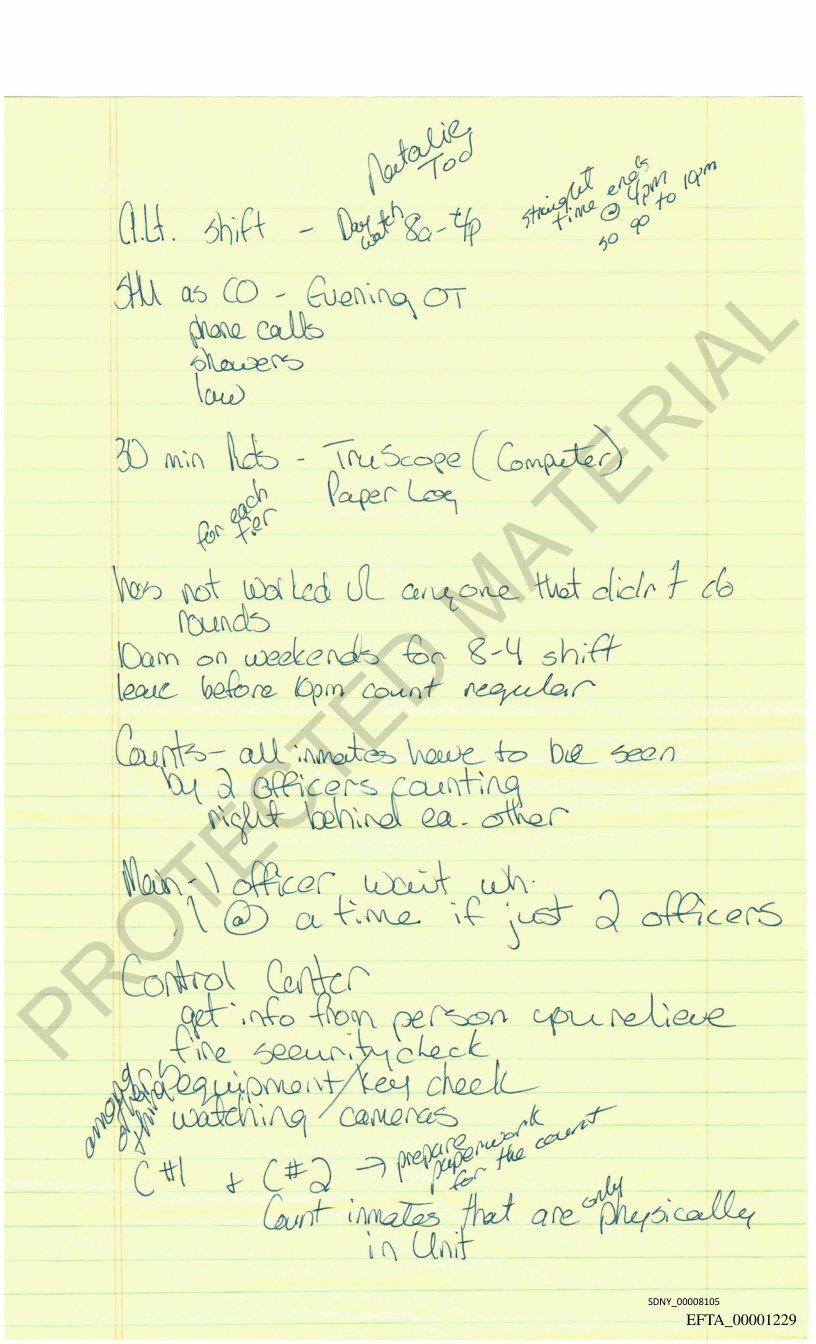 Natalie
Tod
A.Lt. shift - Day watch 8a-4p
straight
time ends
@ 4pm
so go to 10pm
SHU as CO - Evening OT
phone calls
showers
law
30 min Rds - TruScope (Computer)
Paper Log
for each
tier
has not worked w/ anyone that didn't do
rounds
10am on weekends for 8-4 shift
leave before 10pm count regular
Counts - all inmates have to be seen
by 2 officers counting
right behind ea. other
Main - 1 officer wait wh.
1 @ a time if just 2 officers
Control Center
get info from person you relieve
fire security check
equipment/key check
watching cameras
among
C#1 + C#2 → prepare
paperwork
for the count
Count inmates that are only physically
in Unit
PROTECTED MATERIAL
SDNY_00008105
EFTA_00001229